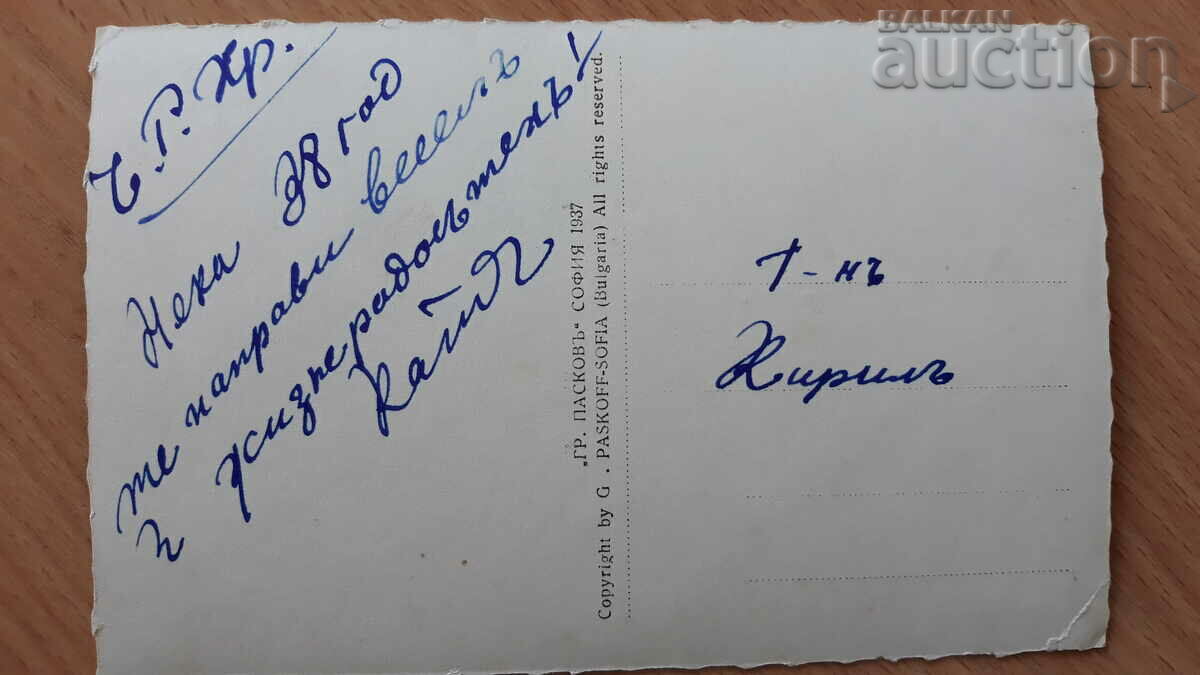 Ч. Р. Хр.
Нека 38 год
те направи веселъ
и жизнерадостенъ!
Катя
„ГР. ПАСКОВЪ“ СОФИЯ 1937
Copyright by G. PASKOFF-SOFIA (Bulgaria) All rights reserved.
Г-нъ
Кирилъ
BALKAN
auction